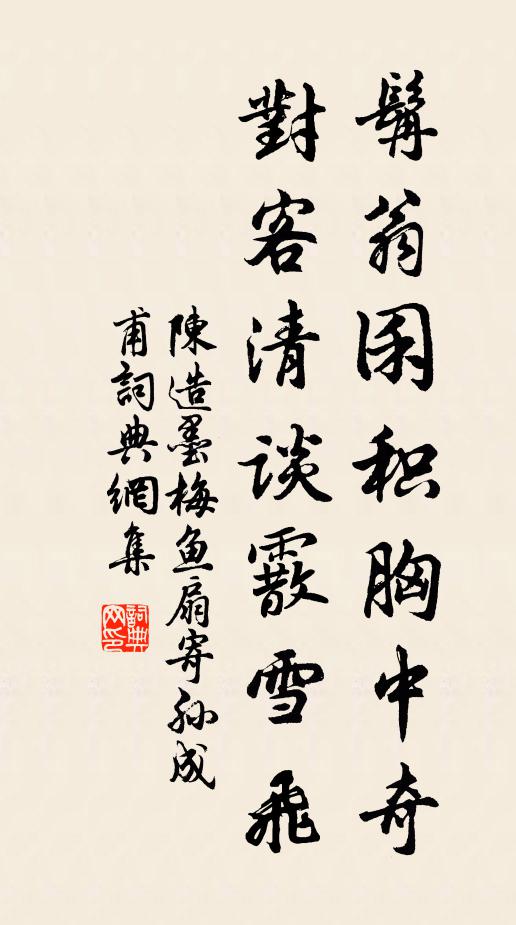 髯翁囷积胸中奇
對客清谈霰雪飛
陳造墨梅鱼扇寄孙成
甫詞典網集
詞典网印